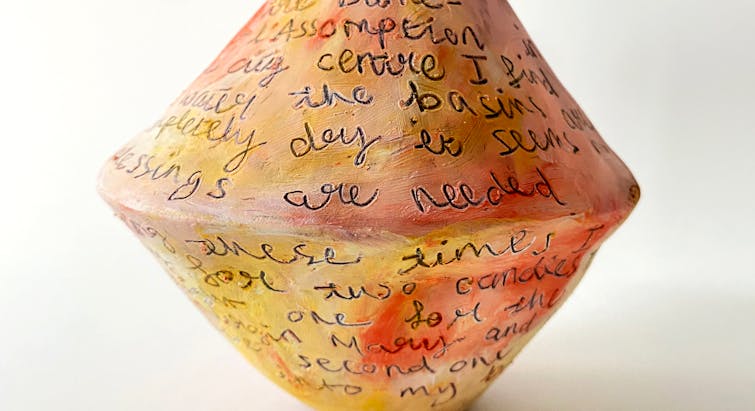 Dame-
L'Assomption in
city centre I find
water the basins are
completely dry it seems n
lessings are needed
ng these times I
for two candles
one for the
Virgin Mary and
second one
into my b